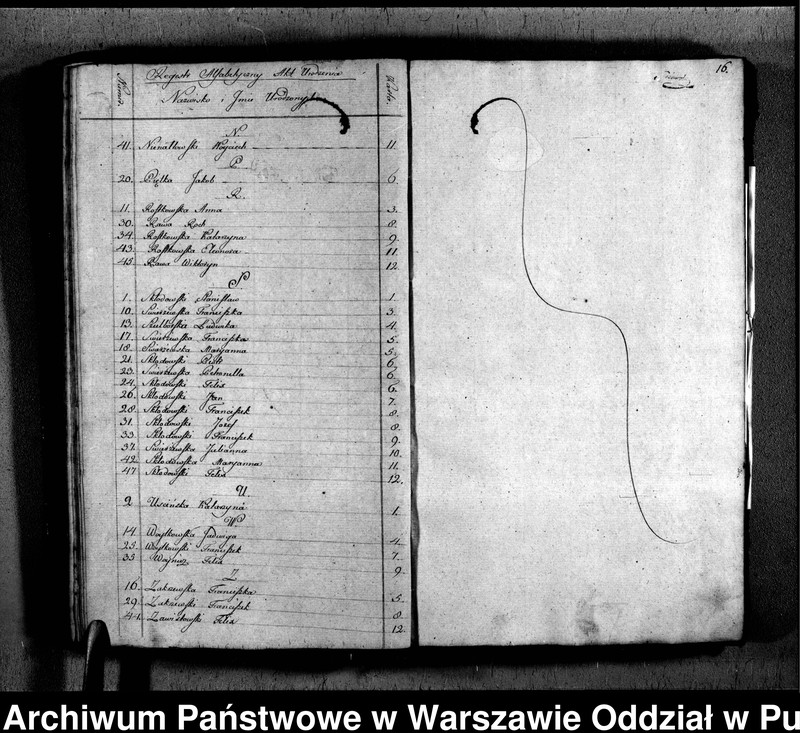 Numer. Regestr Alfabetyczny Akt Urodzenia Karta.
Nazwisko i Imie Urodzonych
N.
41. Wojciech 11.
P.
20. Piętka Jakob 6.
R.
11. Rostkowska Anna 3.
30. Rawa Roch 8.
34. Rostkowska Katarzyna 9.
43. Rostkowska Eleonora 11.
45. Rawa Wiktoryn 12.
S
1. Skłodowski Stanisław 1.
10. Świerzewska Franciszka 3.
13. Ludwika 4.
17. Świerzewska Franciszka 5.
18. Świerzewska Maryanna 5.
21. Skłodowski Piotr 6.
23. Świerzewska Petronella 6.
24. Skłodowski Felix 6.
26. Skłodowski Jan 7.
28. Skłodowski Franciszek 8.
31. Skłodowski Jozef 8.
33. Skłodowski Franciszek 9.
37. Świerzewska Julianna 10.
42. Skłodowska Maryanna 11.
47. Skłodowski Felix 12.
U.
2. Uscińska Katarzyna 1.
W.
14. Woytkowska Jadwiga 4.
25. Woytkowski Franciszek 7.
35. Felix 9.
Z
16. Zakrzewska Franciszka 5.
29. Zakrzewski Franciszek 8.
44. Zawistowski Felix 12.
16.
Archiwum Państwowe w Warszawie Oddział w Pu